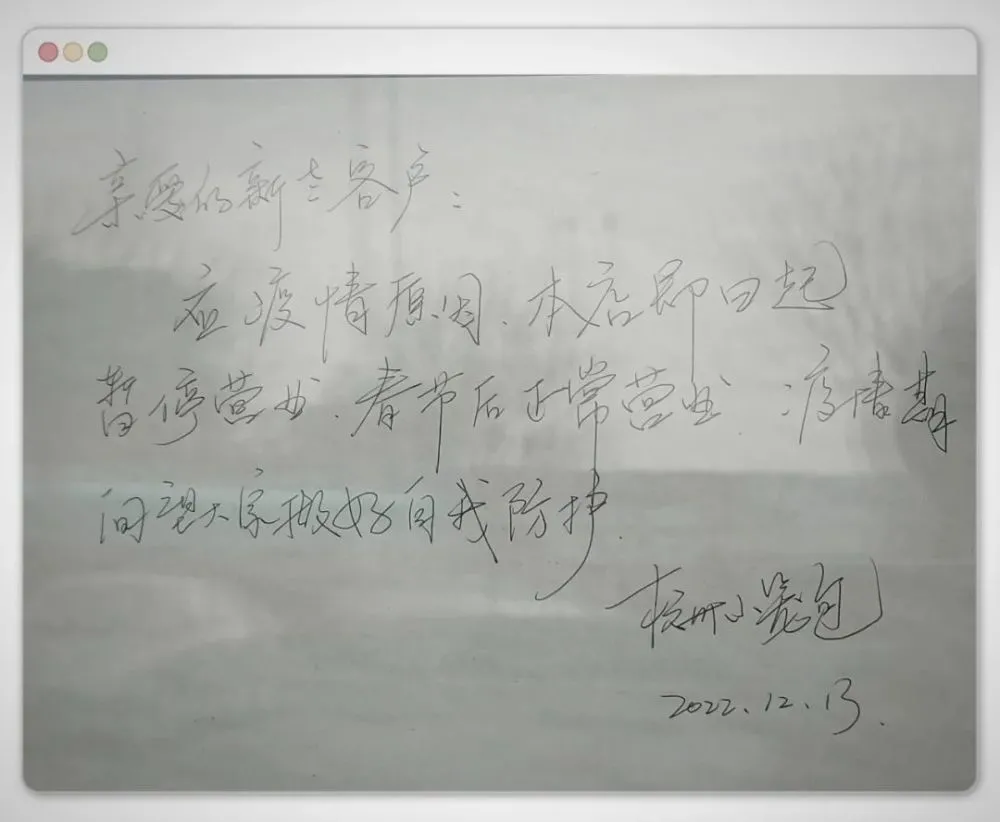 亲爱的新老客户：
应疫情原因、本店即日起
暂停营业、春节后正常营业 疫情期
间望大家做好自我防护.
杭州小笼包
2022.12.13.